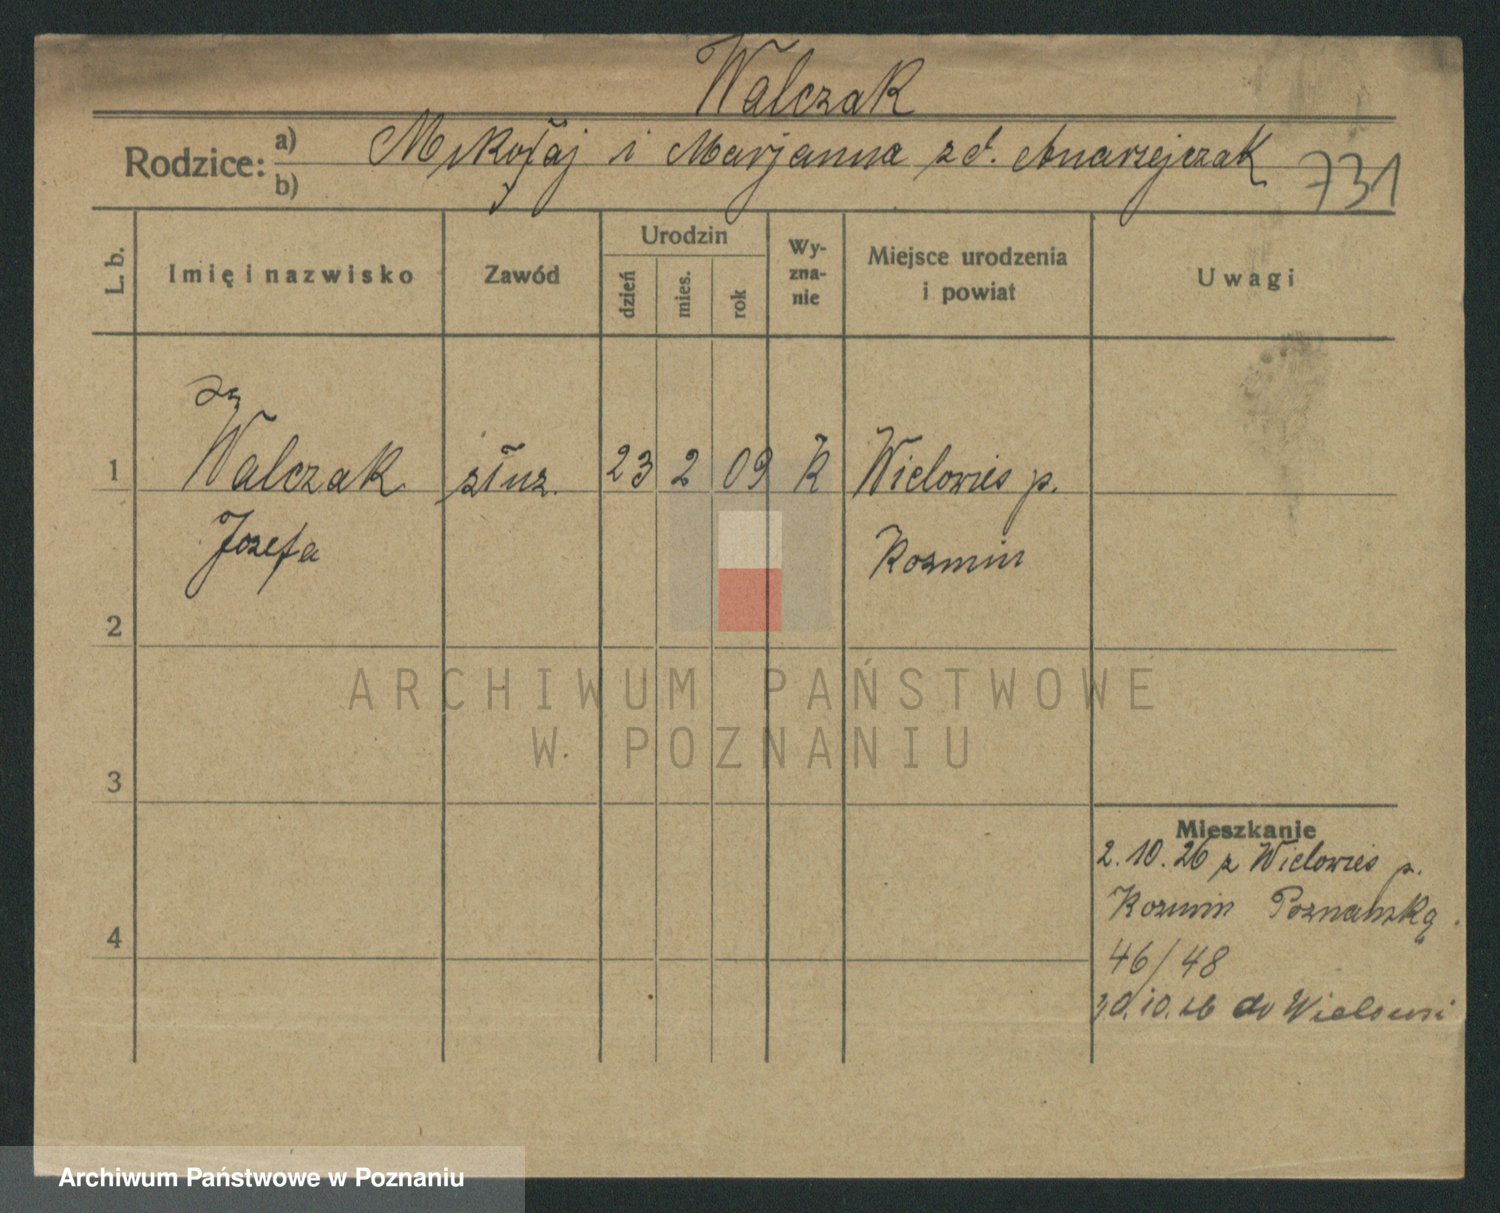 Walczak
Rodzice: a) Mikołaj i Marjanna z d. Andrzejczak
b)
731
L. b.
Imię i nazwisko
Zawód
Urodzin
dzień
mies.
rok
Wy-
zna-
nie
Miejsce urodzenia
i powiat
Uwagi
1 Walczak służ. 23 2 09 K Wielowieś p.
Józefa Kozmin
2
3
4
ARCHIWUM PAŃSTWOWE
W POZNANIU
Mieszkanie
2.10.26 z Wielowieś p.
Kozmin Poznańską
46/48
30.10.26 do Wielowsi
Archiwum Państwowe w Poznaniu